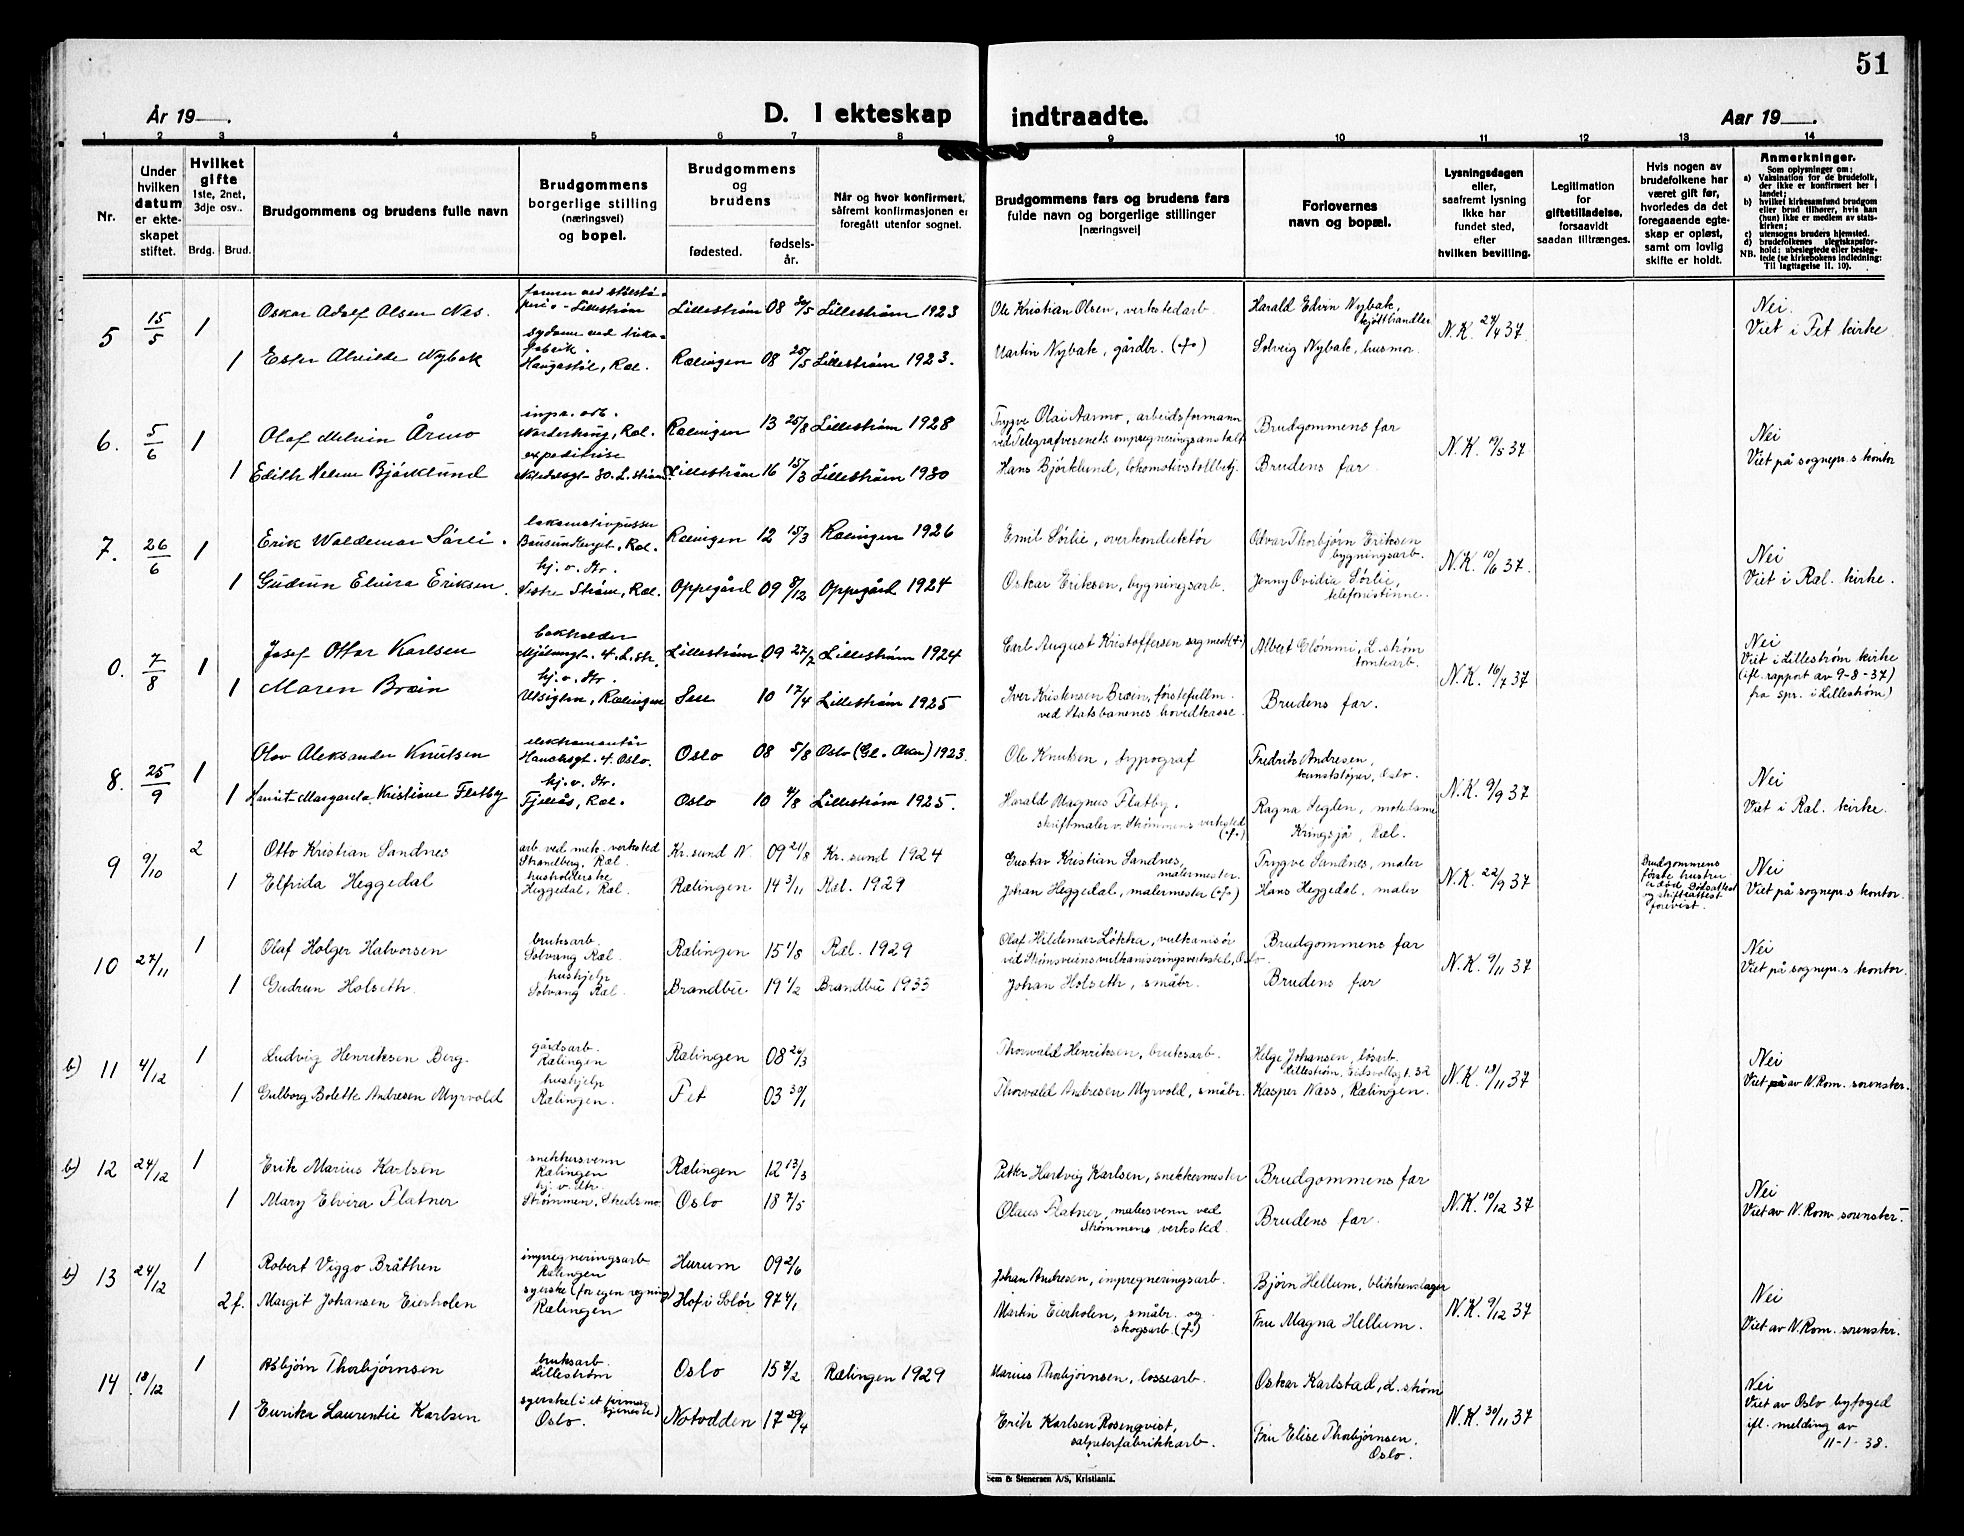 51
År 19
D. I ekteskap
indtraadte.
Aar 19
1 2 3 4 5 6 7 8 9 10 11 12 13 14
Nr.
Under
hvilken
datum
er ekte-
skapet
stiftet.
Hvilket
gifte
1ste, 2net,
3dje osv..
Brdg. Brud.
Brudgommens og brudens fulle navn
Brudgommens
borgerlige stilling
(næringsvei)
og bopel.
Brudgommens
og
brudens
fødested.
fødsels-
år.
Når og hvor konfirmert,
såfremt konfirmasjonen er
foregått utenfor sognet.
Brudgommens fars og brudens fars
fulde navn og borgerlige stillinger
[næringsvei]
Forlovernes
navn og bopæl.
Lysningsdagen
eller,
saafremt lysning
ikke har
fundet sted,
efter
hvilken bevilling.
Legitimation
for
giftetilladelse,
forsaavidt
saadan tiltrænges.
Hvis nogen av
brudefolkene har
været gift før,
hvorledes da det
foregaaende egte-
skap er opløst,
samt om lovlig
skifte er holdt.
Anmerkninger.
Som oplysninger om:
a) Vaksination for de brudefolk,
der ikke er konfirmert her i
landet;
b) hvilket kirkesamfund brudgom
eller brud tilhører, hvis han
(hun) ikke er medlem av stats-
kirken;
c) utensogns bruders hjemsted.
d) brudefolkenes slegtskapsfor-
hold: ubeslegtede eller besleg-
NB. tede (se kirkebokens indledning:
Til iagttagelse II. 10).
5 15/5 1 Oskar Adolf Olsen Nes. Lillestrøm Lillestrøm 08 30/5 Lillestrøm 1923 Ole Kristian Olsen, verkstedarb. Harald Edvin Nybak, kjøtthandler N.K. 24/4 37. Nei.
Viet i Fet kirke
1 Ester Alvilde Nybak fabrik. Haugestøl, Ræl. Rælingen 08 25/5 Lillestrøm 1923. Martin Nybak, gårdbr. (✝) Solveig Nybak, husmor.
6. 5/6 1 Olaf Melvin Årmo impr. arb. Norderhaug, Ræl. Rælingen 13 25/8 Lillestrøm 1928 Trygve Olai Aarmo, arbeidsformann
ved Telegrafvesenets impregneringsanstalt Brudgommens far N.K. 19/5 37 Nei
Viet på sognepr.s kontor
1 Edith Helene Bjørklund expeditrise L.strøm Lillestrøm 16 15/3 Lillestrøm 1930 Hans Bjørklund, lokomotivstallbetj. Brudens far
7. 26/6 1 Erik Waldemar Sørli. lokomotivpusser Ræl. Rælingen 12 15/3 Rælingen 1926 Emil Sørlie, overkonduktør Odvar Thorbjørn Eriksen
bygningsarb. N.K. 10/6 37. Nei
Viet i Ræl. kirke.
1 Gudrun Elvira Eriksen. hj. v. str. Nedre Strøm, Ræl. Oppegård 09 8/12 Oppegård 1924 Oskar Eriksen, bygningsarb. Jenny Ovidia Sørlie,
telefonistinne.
0. 7/8 1 Josef Ottar Karlsen bokholder L.str. Lillestrøm 09 27/7 Lillestrøm 1924 Carl August Kristoffersen sagmest (✝) Albert Glømmi, L.strøm
tomtearb. N.K. 16/7 37 Nei
Viet i Lillestrøm kirke
(ifl. rapport av 9-8-37)
fra spr. i Lillestrøm)
1 Maren Bræin hj. v. str. Utsigten, Rælingen 10 17/4 Lillestrøm 1925 Iver Kristensen Bræin, førstefullm.
ved Statsbanenes hovedkasse. Brudens far.
8. 25/9 1 Olav Aleksander Knutsen elektromontør 4. Oslo. Oslo 08 5/8 Oslo (Gl. Aker) 1923 Ole Knutsen, typograf Fredrik Andresen,
kunststøper, Oslo. N.K. 9/9 37 Nei
Viet i Ræl. kirke.
1 Harriet Margareta Kristiane Flatby hj. v. str. Fjellås, Ræl. Oslo 10 4/8 Lillestrøm 1925. Harald Magnus Flatby,
skriftmaler v. Strømmens verksted (✝) Ragna Seglen, motedame
Kringsjå, Ræl.
9 9/10 2 Otto Kristian Sandnes arb. ved mek. verksted
Strandberg, Ræl. Kr.sund N. 09 21/8 Kr.sund 1924 Gustav Kristian Sandnes,
malermester. Trygve Sandnes, maler N.K. 22/9 37 Brudgommens
første hustru
er død. Dødsattest
og skifteattest
forevist. Nei
Viet på sognepr.s kontor.
1 Elfrida Heggedal husholderske
Heggedal, Ræl. Rælingen 14 3/11 Ræl. 1929 Johan Heggedal, malermester (✝) Hans Heggedal, maler
10 27/11 1 Olaf Holger Halvorsen bruksarb.
Solvang Ræl. Rælingen 15 1/8 Ræl. 1929 Olaf Hildemar Løkka, vulkanisør
ved Strømsveiens vulkaniseringsverksted, Oslo. Brudgommens far N.K. 9/11 37 Nei
Viet på sognepr.s kontor.
1 Gudrun Holseth. hushjelp
Solvang Ræl. Brandbu 19 1/2 Brandbu 1933 Johan Holseth, småbr. Brudens far
b) 11 4/12 1 Ludvig Henriksen Berg. gårdsarb.
Rælingen Rælingen 08 26/3 Thorvald Henriksen, bruksarb. Helge Johansen, løsarb.
Lillestrøm, Eidsvollsg t. 32 N.K. 18/11 37 Nei
Viet på av N. Rom. sorenskr.
1 Gulborg Bolette Andresen Myrvold hushjelp
Rælingen. Fet 03 30/1 Thorvald Andresen Myrvold, småbr. Kasper Næss, Rælingen.
b) 12 24/12 1 Erik Marius Karlsen snekkersvenn
Rælingen Rælingen 12 13/3 Petter Hartvig Karlsen, snekkermester Brudgommens far N.K. 10/12 37 Nei
Viet av N. Rom. sorenskr.
1 Mary Elvira Flatner hj. v. str.
Strømmen, Skedsmo Oslo 18 7/5 Olaus Flatner, malersvenn ved
Strømmens verksted. Brudens far.
b) 13 24/12 1 Robert Viggo Bråthen impregneringsarb.
Rælingen Hurum 09 2/6 Johan Andresen, impregneringsarb. Bjørn Hellum, blikkenslager N.K. 9/12 37 Nei
Viet av N. Rom. sorenskr.
2 f. Margit Johansen Eierholen syerske (for egen regning)
Rælingen Hof i Solør 97 4/1 Martin Eierholen, småbr. og
skogsarb. (✝) Fru Magna Hellum.
14 18/12 1 Asbjørn Thorbjørnsen bruksarb.
Lillestrøm Oslo 15 2/2 Rælingen 1929 Marius Thorbjørnsen, lossearb. Oskar Karlstad, L.strøm N.K. 30/11 37 Nei
Viet av Oslo byfoged
ifl. melding av
11-1-38.
1 Eurika Laurentie Karlsen syerske (i et firmas
tjeneste)
Oslo. Notodden 17 29/4 Erik Karlsen Rosenqvist,
salpeterfabrikkarb. Fru Elise Thorbjørnsen,
Oslo.
Sem & Stenersen A/S, Kristiania.